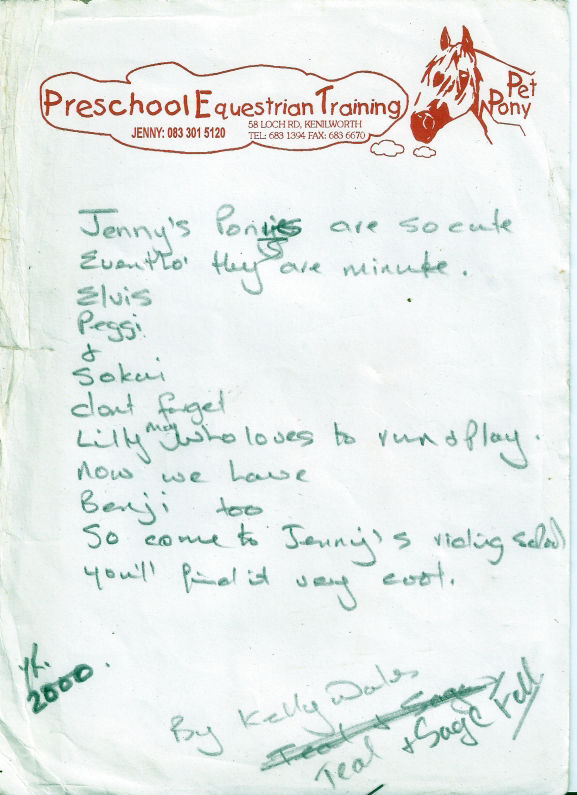 Preschool Equestrian Training
JENNY: 083 301 5120
58 LOCH RD, KENILWORTH
TEL: 683 1394 FAX: 683 6670
Pet
Pony
Jenny's Ponies are so cute
Eventho' they are minute.
Elvis
Peggi
&
Sokai
dont forget
Lilly may who loves to run & play.
now we have
Benji too
So come to Jenny's riding school
you'll find it very cool.
yr.
2000.
By Kelly Wales
Teal & Sage
Teal & Sage Fell